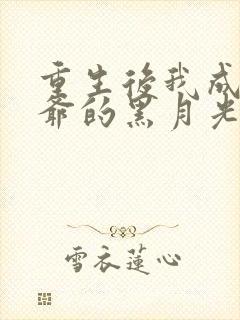 重生後我成
爺的黑月光
雪衣蓮心